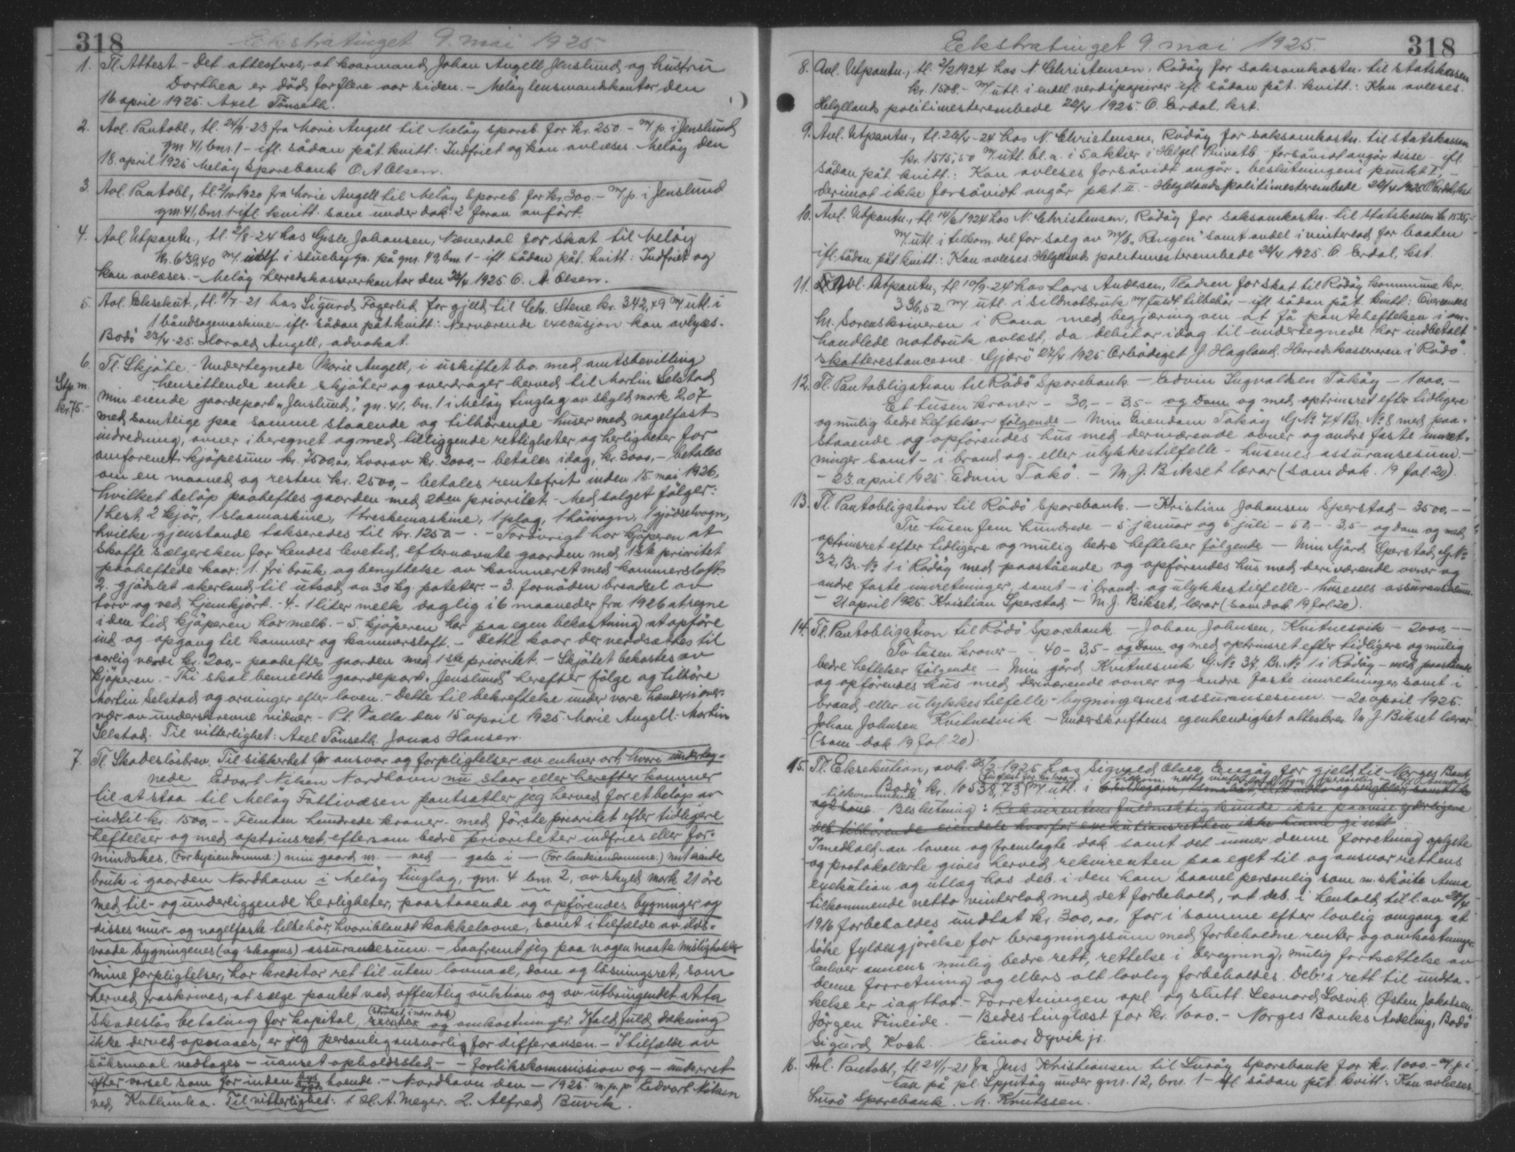 318 Eekstratinget 9 mai 1925
1. Tl. Attest - Det attesteres, at kaarmand Johan Angell Jenslund og hustru
Dorthea er död for flere aar siden. - Melöy lensmandskontor den
16 april 1925 Axel Tönseth.
2. Avl. Pantobl., tl. 24/9-23 fra Marie Angell til Melöy spareb. for kr. 250.- m/p. i Jenslund
gm 41, bnr. 1 - ifl. sådan påt. kvitt: Indfriet og kan avlæses. Melöy den
18. april 1925 Melöy Sparebank O A Olsen.
3. Avl. Pantobl., tl. 1920 fra Marie Angell til Melöy Spareb. for kr. 300.- m/p. i Jenslund
gm 41, bnr. 1 - ifl. kvitt. som under dok. 2 foran anfört.
4. Avl. Utpantn., tl. 2/8-24 hos Gisle Johansen, Nænerdal for skat til Melöy
kr. 639,40 m/ utl. i stuebygn. på gnr. 49 bnr. 1 - ifl. sådan påt. kvitt: Indfriet og
kan avlæses. - Melöy herredskassererkontor den 24/4 1925 O. A. Olsen.
5. Avl. Eksekut., tl. 21 hos Sigurd Fagerlid for gjeld til Chr. Stene kr. 342,49 m/ utl. i
1 båndsagemaskine - ifl. sådan påt. kvitt: Nærværende execusjon kan avlyses.
Bodö 23/4-25. Harald Angell, advokat.
6. Tl. Skjöte - Undertegnede Marie Angell, i uskiftet bo med amtsbevilling
Stp. m. kr. 75.-
hensittende enke skjöter og overdrager herved til Martin Selstad
min eiende gaardepart "Jenslund", gn. 41, bn. 1 i Melöy tinglag av skyld mark 2,07
med samtlige paa samme staaende og tilhörende huser med nagelfast
indredning, ovner iberegnet og med tilliggende rettigheter og herligheter for
omforenet kjöpesum kr. 7500,00, hvorav kr. 2000,- betales idag, kr. 3000,- betales
om en maaned og resten kr. 2500,- betales rentefrit inden 15 mai 1926,
hvilket belöp paaheftes gaarden med 2den prioritet. - Med salget fölger:
1 hest, 2 kjör, 1 slaamaskine, 1 treskemaskine, 1 plog, 1 höivogn, 1 gjödselvogn,
hvilke gjenstande takseredes til kr. 1250,- - Forövrigt har kjöperen at
skaffe sælgersken for hendes levetid, efternævnte gaarden med 1ste prioritet
paaheftede kaar: 1. fri bruk og benyttelse av kammeret med kammersloft.
2. gjödslet akerland til utsæd av 30 kg poteter. - 3. fornöden brændsel av
torv og ved hjemkjört. - 4. 1 liter melk daglig i 6 maaneder fra 1926 at regne
i den tid kjöperen har melk. - 5. Kjöperen har paa egen bekostning at opföre
ind- og opgang til kammer og kammersloft. - Dette kaar der verdsættes til
aarlig værdi kr. 200,- paaheftes gaarden med 1ste prioritet. - Skjötet bekostes av
kjöperen. - Thi skal bemeldte gaardepart "Jenslund" herefter fölge og tilhöre
Martin Selstad og arvinger efter loven. - Dette til bekræftelse under vore hænder i nær-
vær av underskrevne vidner. - Pt. Valla den 15 april 1925 Marie Angell. Martin
Selstad. Til vitterlighet: Axel Tönseth. Jonas Hansen.
7. Tl. Skadeslösbrev. Til sikkerhet for ansvar og forpligtelser av enhver art, hvori underteg-
nede Edvart Nilsen Nordhavn nu staar eller herefter kommer
til at staa til Melöy Fattivæsen pantsætter jeg herved for et belöp av
indtil kr. 1500,- - Femten hundrede kroner - med förste prioritet efter tidligere
heftelser og med optrinsret eftersom bedre prioriteter indfries eller for-
mindskes. (For byeiendomme:) min gaard nr. - ved - gate i - (For landeiendomme:) mit eiende
bruk i gaarden Nordhavn i Melöy tinglag, gnr. 4 bnr. 2, av skyld mark 21 öre
med til- og underliggende herligheter, paastaaende og opförendes bygninger og
disses mur- og nagelfaste tilbehör, hvoriblandt kakkelovne, samt i tilfælde av ilds-
vaade bygningenes (og skogens) assurancesum. - Saafremt jeg paa nogen maate misligholder
mine forpligtelser, har kreditor ret til uten lovmaal, dom og lösningsret, som
herved fraskrives, at sælge pantet ved offentlig auktion og av utbringendet at ta
skadeslös betaling for kapital, renter og omkostninger. Hvis fuld dækning
ikke derved opnaaes, er jeg personlig ansvarlig for differansen. - I tilfælde av
söksmaal vedtages - uanset opholdssted - forlikskommission og - underret
efter varsel som for inden bys boende. - Nordhavn den - 1925 m.p.p Edvart Nilsen
ved, Kathinka. Til vitterlighet: 1 H. A. Meyer. 2. Alfred Buvik.
Eekstratinget 9 mai 1925. 318
8. Avl. Utpantn., tl. 2/2 1924 hos N. Christensen, Rödöy for saksomkostn. til statskassen
kr. 1508.- m/ utl. i endel verdipapirer ifl. sådan påt. kvitt: Kan avlæses.
Helgeland politimesterembede 22/4 1925 O. Erdal, kst.
9. Avl. Utpantn., tl. 26/4-24 hos N. Christensen, Rödöy for saksomkostn. til statskassen
kr. 1515,50 m/ utl. bl. a. i 5 aktier i Helgel. Privatb. forsåvidt angår disse - ifl.
sådan påt. kvitt: Kan avlæses forsåvidt angår beslutningens punkt I, -
derimot ikke forsåvidt angår pkt. II - Helgelands politimesterembede 22/4 1925 O Erdal, kst.
10. Avl. Utpantn., tl. 14/6 1924 hos N. Christensen, Rödöy for saksomkostn. til statskassen kr. 1535,-
m/ utl. i tilkom. del for salg av m/b. "Ringen" samt andel i vinterlod for baaten
- ifl. sådan påt. kvitt: Kan avlæses. Helgelands politimesterembede 22/4 1925 O. Erdal, kst.
11. Avl. Utpantn., tl. 10/9-24 hos Lars Andersen, for skat til Rödöy kommune kr.
336,50 m/ utl. i sildnotbruk m/ fuldt tilbehör - ifl. sådan påt. kvitt: Oversendes
hr. Sorenskriveren i Rana med begjæring om at få pantehefteisen i om-
handlede notbruk avlæst, da debitor idag til undertegnede har indbetalt
skatterestancerne. Gjörö 27/4 1925 Ærbödigst J. Hagland, Herredskassereren i Rödö.
12. Tl. Pantobligation til Rödö Sparebank - Edvin Ingvaldsen Tåköy - 1000.-
Et tusen kroner - 30,- - 3,5 - og dom og med optrinsret efter tidligere
og mulig bedre heftelser fölgende - Min Eiendom Tåköy G.No 74 Br. No 8 med paa-
staaende og opförendes hus med derværende ovner og andre faste innret-
ninger samt - i brand og - eller ulykkestilfelle - husenes assuransesum. -
- 23 april 1925 Edvin Takö. - M. J. Bikset lærar (som dok. 19 fol 20)
13. Tl. Pantobligation til Rödö Sparebank. - Kristian Johansen Sperstad - 3500,- -
Tre tusen fem hundrede - 5 januar og 5 juli - 52.- 3,5 - og dom og med
optrinsret efter tidligere og mulig bedre heftelser fölgende - Min Gård Sperstad, G.No
32, Br. No 1 i Rödöy med paastående og opförendes hus med derværende ovner og
andre faste innretninger, samt - i brand- og ulykkestilfelle - husenes assuransesum.
- 21 april 1925. Kristian Sperstad - M. J. Bikset, lærar (som dok 19 fol 20).
14. Tl. Pantobligation til Rödö Sparebank - Johan Johnsen, Knitnesvik - 2000,- -
To tusen kroner - - 40 - 3,5 - og dom og med optrinsret efter tidligere og mulig
bedre heftelser fölgende - Min gård Knitnesvik G.No 34, Br. No 1 i Rödöy - med paastående
og opförendes hus med derværende ovner og andre faste innretninger, samt i
brand- eller ulykkestilfelle - bygningenes assuransesum. - 20 april 1925.
Johan Johnsen Knitnesvik - Underskriftens egenhendighet attesteres M. J. Bikset lærar
(som dok 19 fol 20).
15. Tl. Eksekution, avh. 1925 hos Sigvald Olsen for gjeld til Norges Bank
Bodö kr. 10538,73 m/ utl. i
Beslutning: Rekvirentens fuldmektig kunde ikke paavise yderligere
deb. tilhörende eiendele hvorfor exekutionsretten ikke kunne gi utl.
I medhold av loven og fremlagte dok. samt det under denne forretning oplyste
og protokollerte gives herved rekvirenten paa eget til og ansvar rettens
exekution og utlæg hos deb. i den ham saavel personlig som m. sköite Anna
tilkommende netto vinterlod med det forbehold, at deb. i henhold til l. av
1916 forbeholdes undtat kr. 300,00, for i samme efter lovlig omgang at
söke fyldesgjörelse for beregningssum med forbeholdne renter og omkostninger.
Enhver annens mulig bedre rett, rettelse i beregning, mulig fortsættelse av
denne forretning og ellers alt lovlig forbeholdes. Deb's rett til undta-
kelse er iagttat. - Forretningen opl. og slutt. Leonard Losvik. Östen Jakobsen.
Jörgen Fineide. - Bedes tinglæst for kr. 1000.- Norges Banks Avdeling, Bodö
Sigurd Koch. Einar Dyvik jr.
16. Avl. Pantobl., tl. 24/1-21 fra Jens Kristiansen til Luröy Sparebank for kr. 1000.- m/p i
lån på pl. under gnr. 12, bnr. 1 - ifl. sådan påt. kvitt: Kan avlæses
Lurö Sparebank. M. Knutssen.